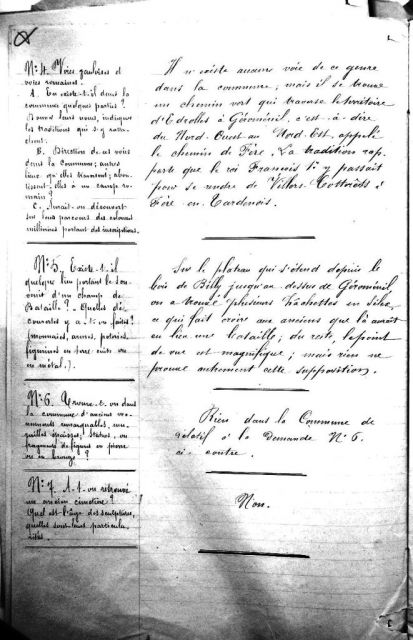 N° 4. Voies gauloises et
voies romaines.
A. En existe-t-il dans la
commune quelques parties ?
Donnez leurs noms, indiquez
les traditions qui s'y ratta-
chent.
B. Direction de ces voies
dans la Commune; autres
lieux qu'elles traversent; abou-
tissent-elles à un camp ro-
main ?
C. Aurait-on découvert
sur leur parcours des colonnes
milliaires portant des inscriptions
Il n'existe aucune voie de ce genre
dans la commune, mais il se trouve
un chemin vert qui traverse le territoire
d'Edrolles à Géroménil, c'est-à-dire
du Nord-Ouest au Nord-Est, appelé
le chemin de Fère. La tradition rap-
porte que le roi François 1er y passait
pour se rendre de Villers-Cotterêts à
Fère en Tardenois.
N° 5. Existe-t-il
quelque lieu portant le sou-
venir d'un champ de
Bataille ? Quelles dé-
couvertes y a-t-on faites ?
(monnaies, armes, poteries,
figurines en terre cuite ou
en métal).
Sur le plateau qui s'étend depuis le
bois de Billy jusqu'au dessus de Géroménil
on a trouvé plusieurs hachettes en silex,
ce qui fait croire aux anciens que là aurait
eu lieu une bataille; du reste, le point
de vue est magnifique; mais rien ne
prouve autrement cette supposition.
N° 6. Trouve-t-on dans
la commune d'anciens mo-
numents remarquables, mu-
railles épaisses, statues, ou
fragments de figures en pierre
ou en bronze ?
Rien dans la Commune de
relatif à la demande N° 6.
ci-contre.
N° 7. A-t-on retrouvé
un ancien cimetière ?
Quel est l'âge des sculptures,
quelles sont leurs particula-
rités.
Non.